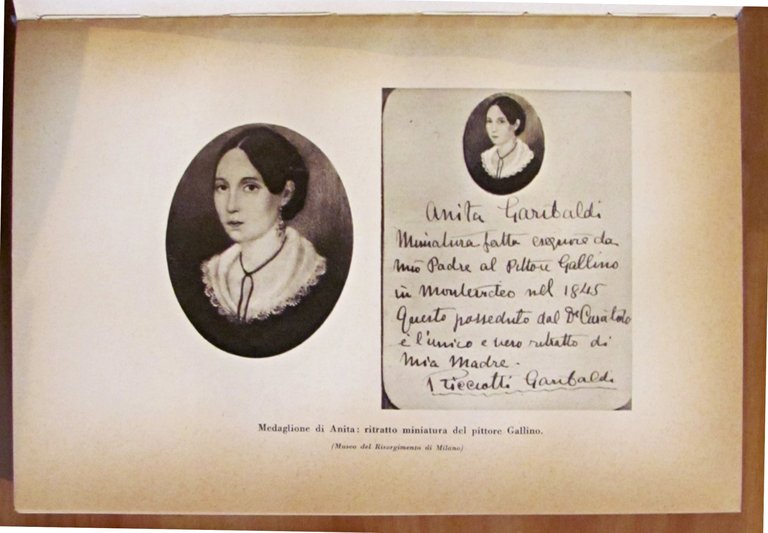 Anita Garibaldi
Miniatura fatta eseguire da
mio Padre al Pittore Gallino
in Montevideo nel 1845
Questo posseduto dal Dr
è l'unico e vero ritratto di
mia Madre.
Ricciotti Garibaldi
Medaglione di Anita: ritratto miniatura del pittore Gallino.
(Museo del Risorgimento di Milano)